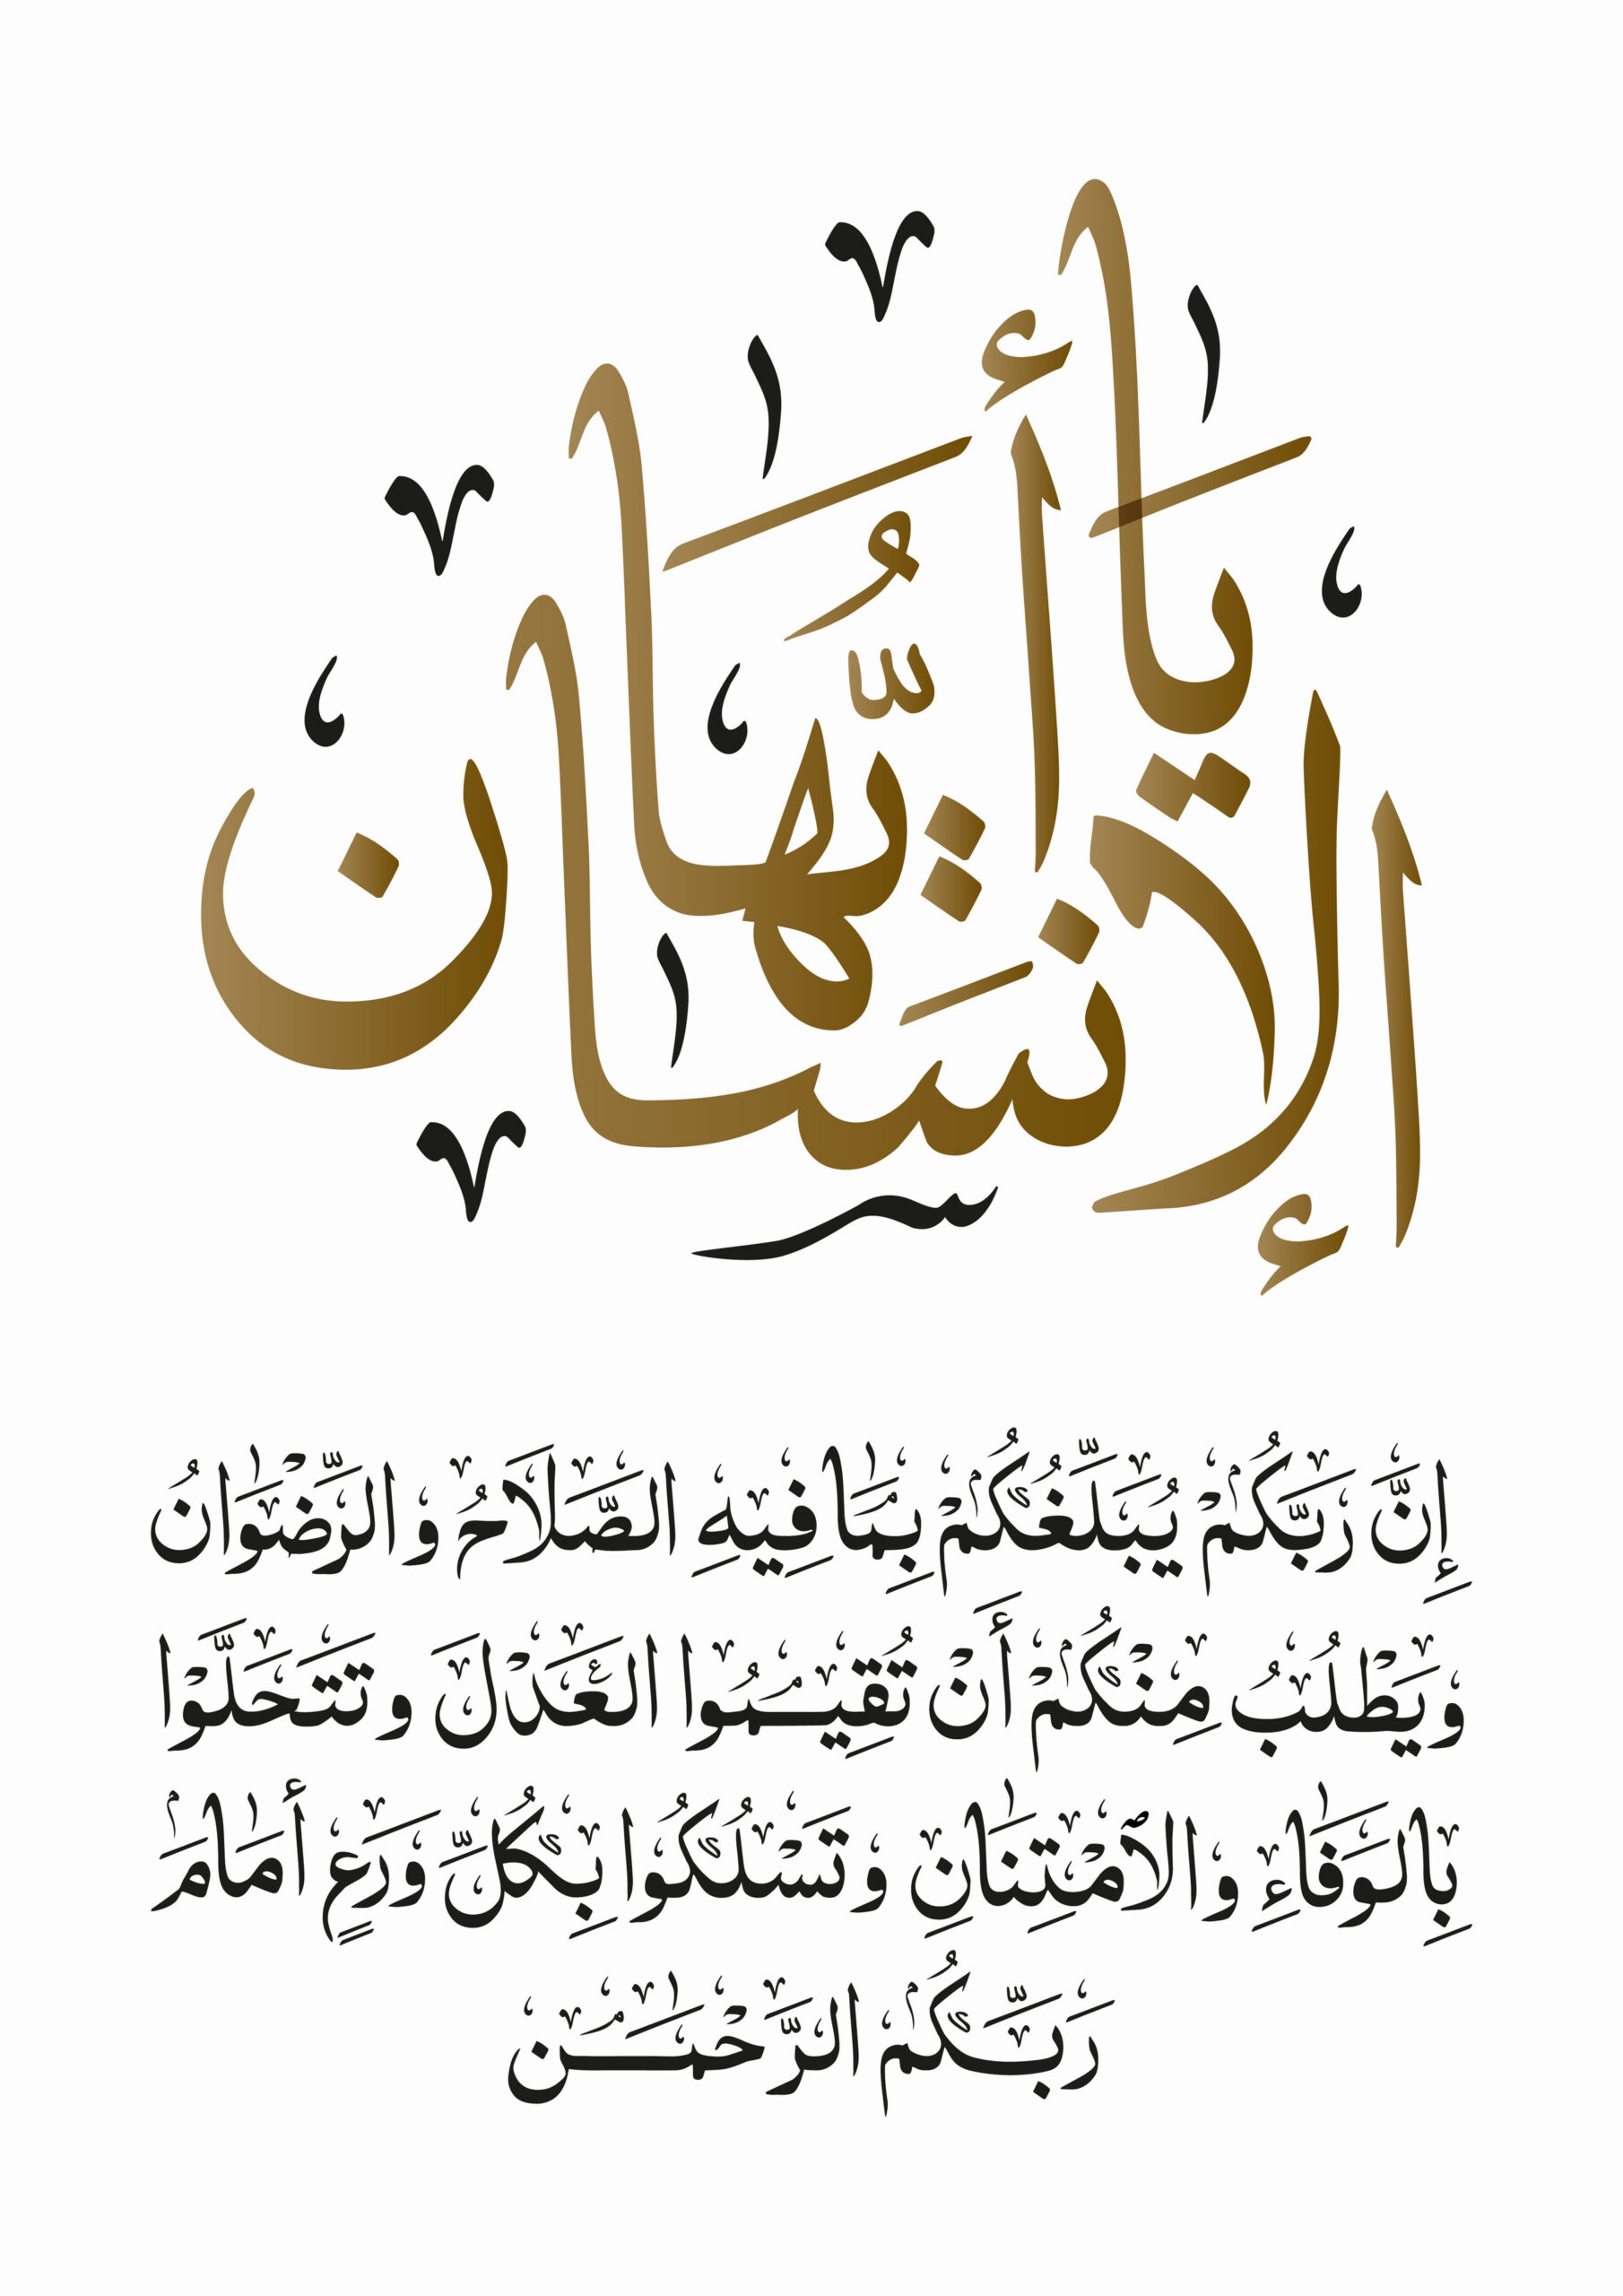 يَا أَيُّهَا الْإِنْسَان
إِنَّ رَبَّكُمْ يُبَلِّغُكُمْ بِمَا فِيهِ الصَّلَاحُ وَالرِّضْوَانُ
وَيَطْلُبُ مِنْكُمْ أَن تُقِيمُوا العَدْلَ وَتَتَحَلَّوْا
بِالوَفَاءِ وَالامْتِنَانِ وَتَسْلُكُوا بِكُلِّ وَرَعٍ أَمَامَ
رَبِّكُمُ الرَّحْمَنِ